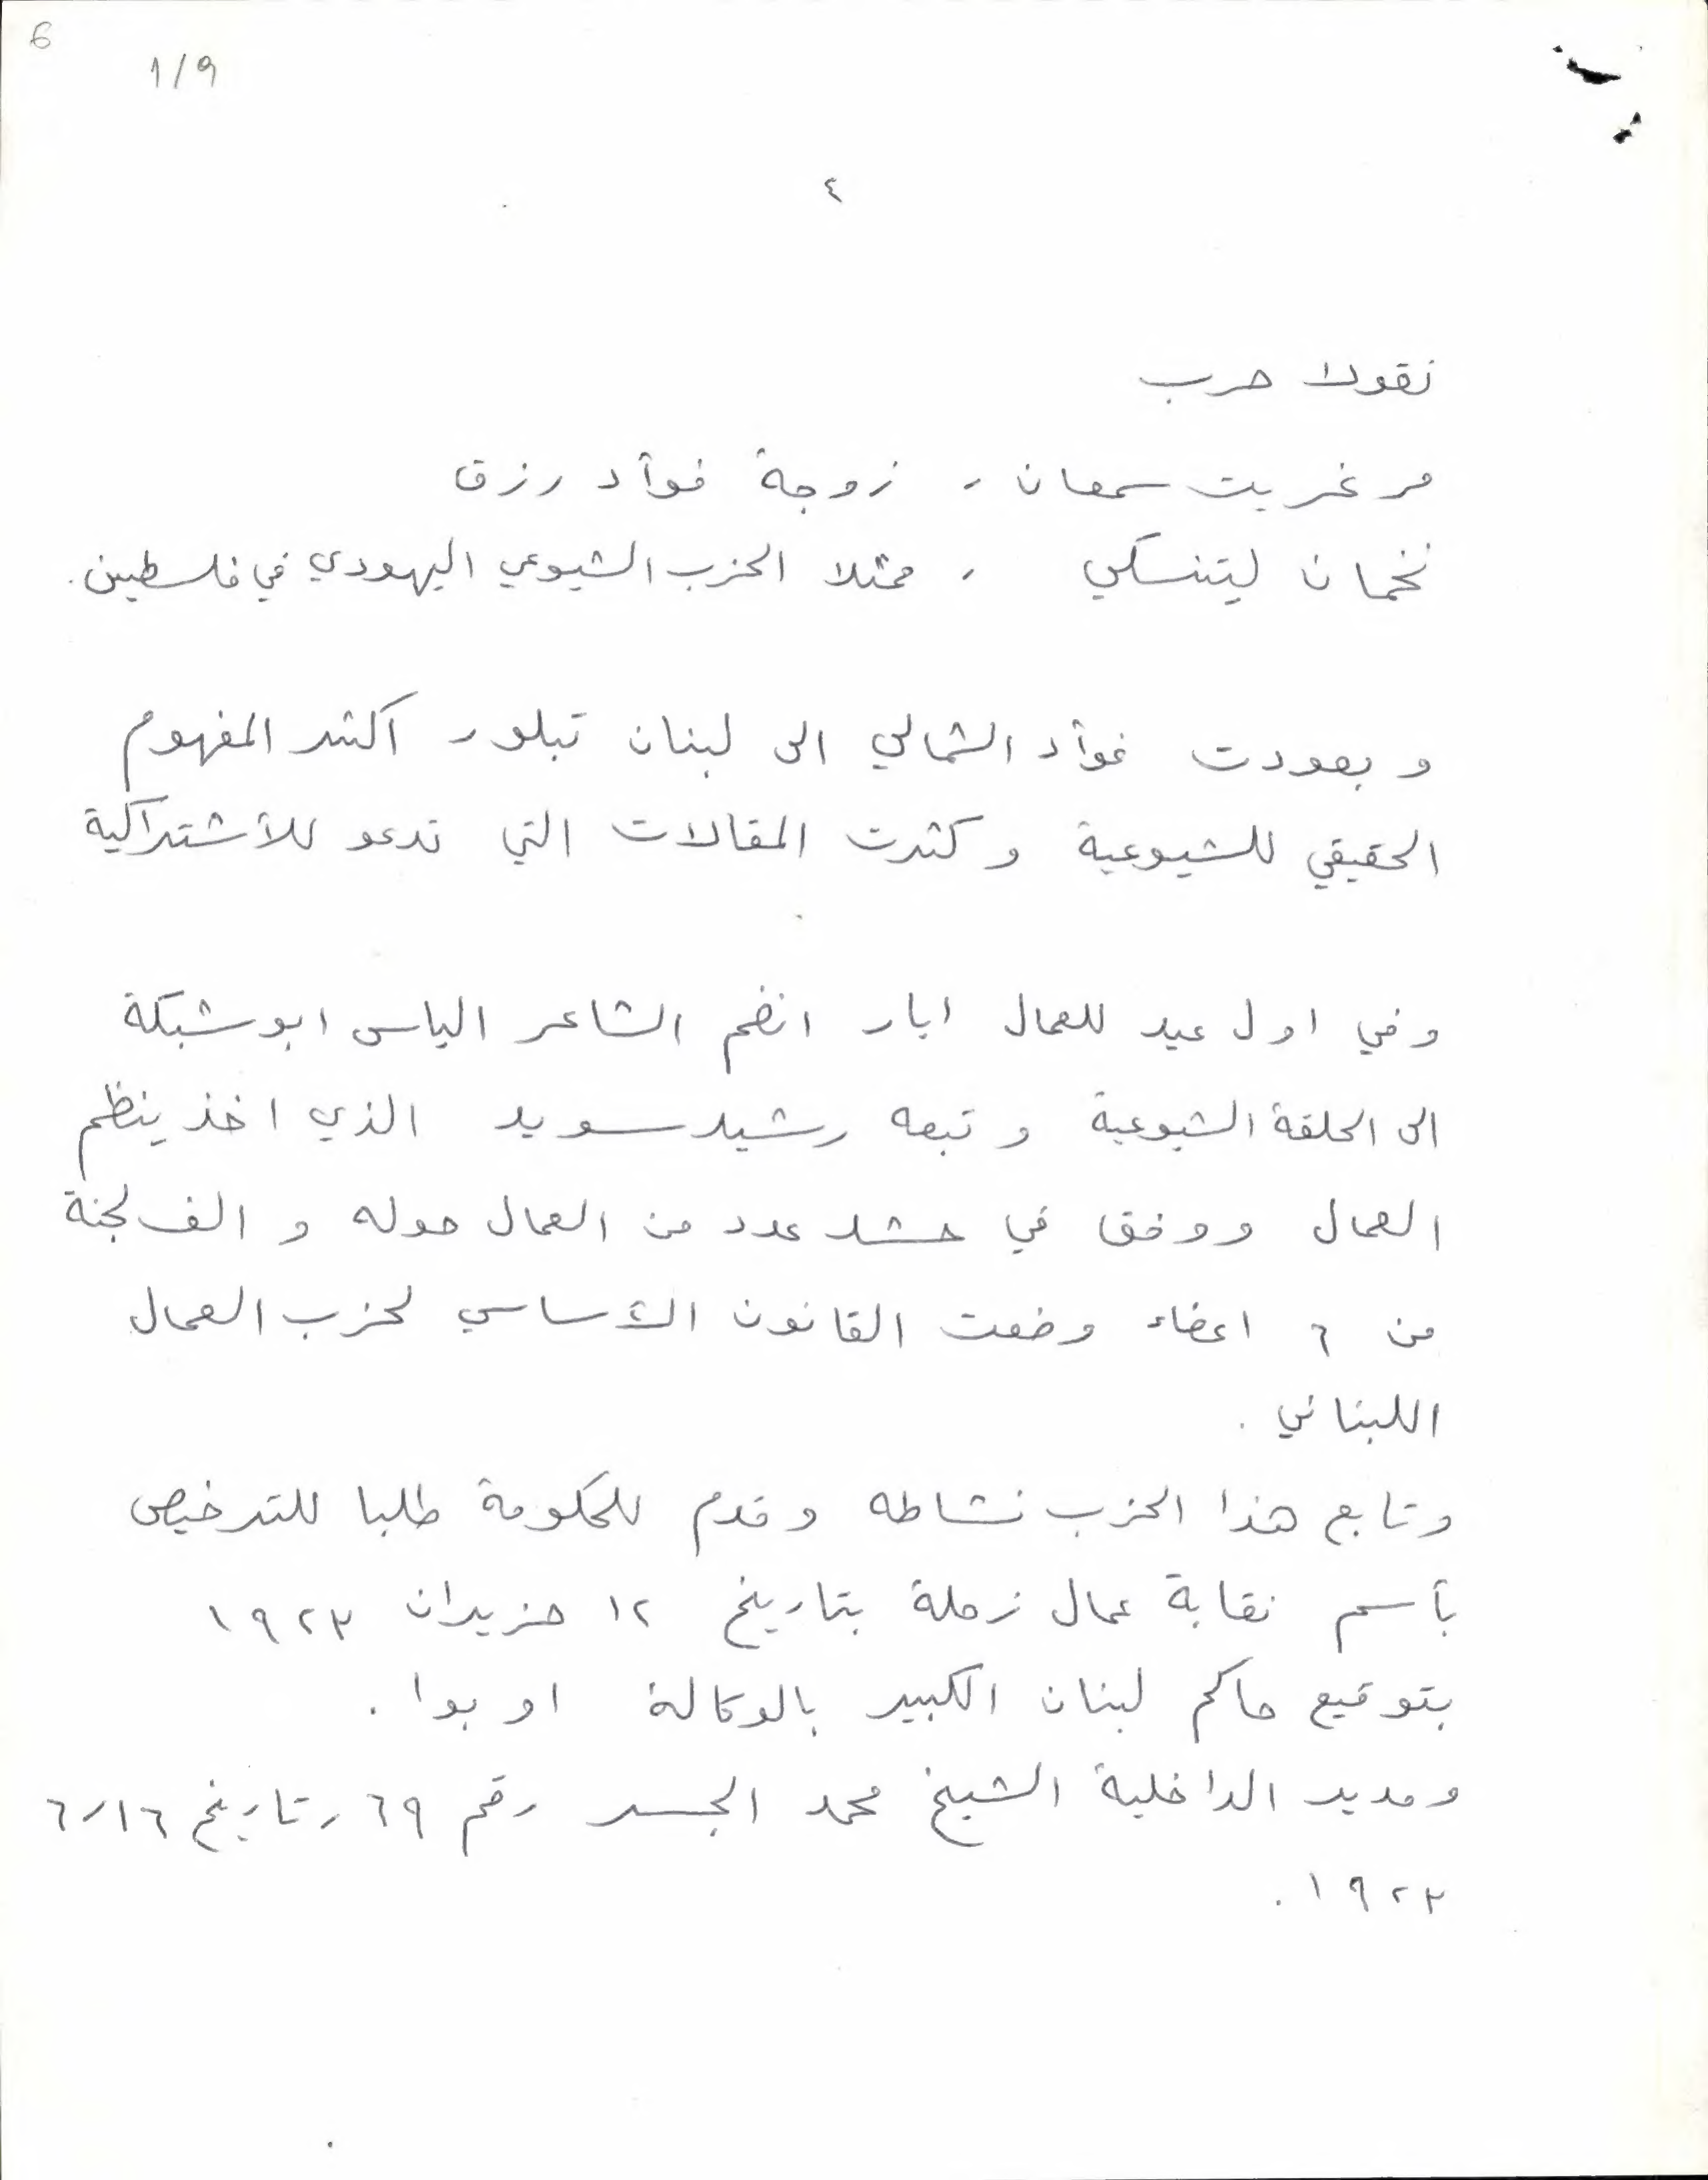 6
1/9
٤
نقولا حرب
مرغريت سمعان ، زوجة فوأد رزق
نخمان ليتنسكي ، ممثلا الحزب الشيوعي اليهودي في فلسطين.
وبعودت فوأد الشمالي الى لبنان تبلور اكثر المفهوم
الحقيقي للشيوعية وكثرت المقالات التي تدعو للأشتراكية
وفي اول عيد للعمال ايار انضم الشاعر الياس ابو شبكة
الى الحلقة الشيوعية وتبعه رشيد سويد الذي اخذ ينظم
العمال ووفق في حشد عدد من العمال حوله و الف لجنة
من ٦ اعضاء وضعت القانون الأساسي لحزب العمال
اللبناني .
وتابع هذا الحزب نشاطه وقدم للحكومة طلبا للترخيص
بأسم نقابة عمال زحلة بتاريخ ١٢ حزيران ١٩٢٣
بتوقيع حاكم لبنان الكبير بالوكالة اوبوا .
ومدير الداخلية الشيخ محمد الجسر رقم ٦٩ ، تاريخ ٦،١٦
١٩٢٣ .